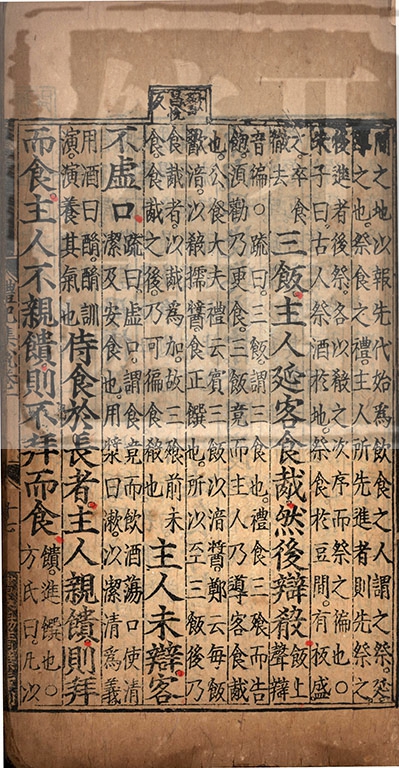 間之地以報先代始為飲食之人謂之祭。延
導之也。祭食之禮主人所先進者則先祭之
後進者後祭各以殽之次序而祭之徧也○
朱子曰古人祭酒於地祭食於豆間有板盛
之卒食徹去三飯主人延客食胾然後辯殽飯上聲辯
音徧○疏曰三飯謂三食也禮食三飱而告
飽須勸乃更食三飯竟而主人乃導客食胾
也公食大夫禮云賓三飯以湆醬鄭云每飯
歠湆以殽擩醬食正饌也所以至三飯後乃
食胾者以胾為加故三飱前未
食食胾之後乃可徧食殽也主人未辯客
不虛口疏曰虛口謂食竟而飲酒蕩口使清
潔及安食也用漿曰漱以潔清為義
用酒曰酳酳訓
演演養其氣也侍食於長者主人親饋則拜
而食主人不親饋則不拜而食饋進饌也○
方氏曰凡以